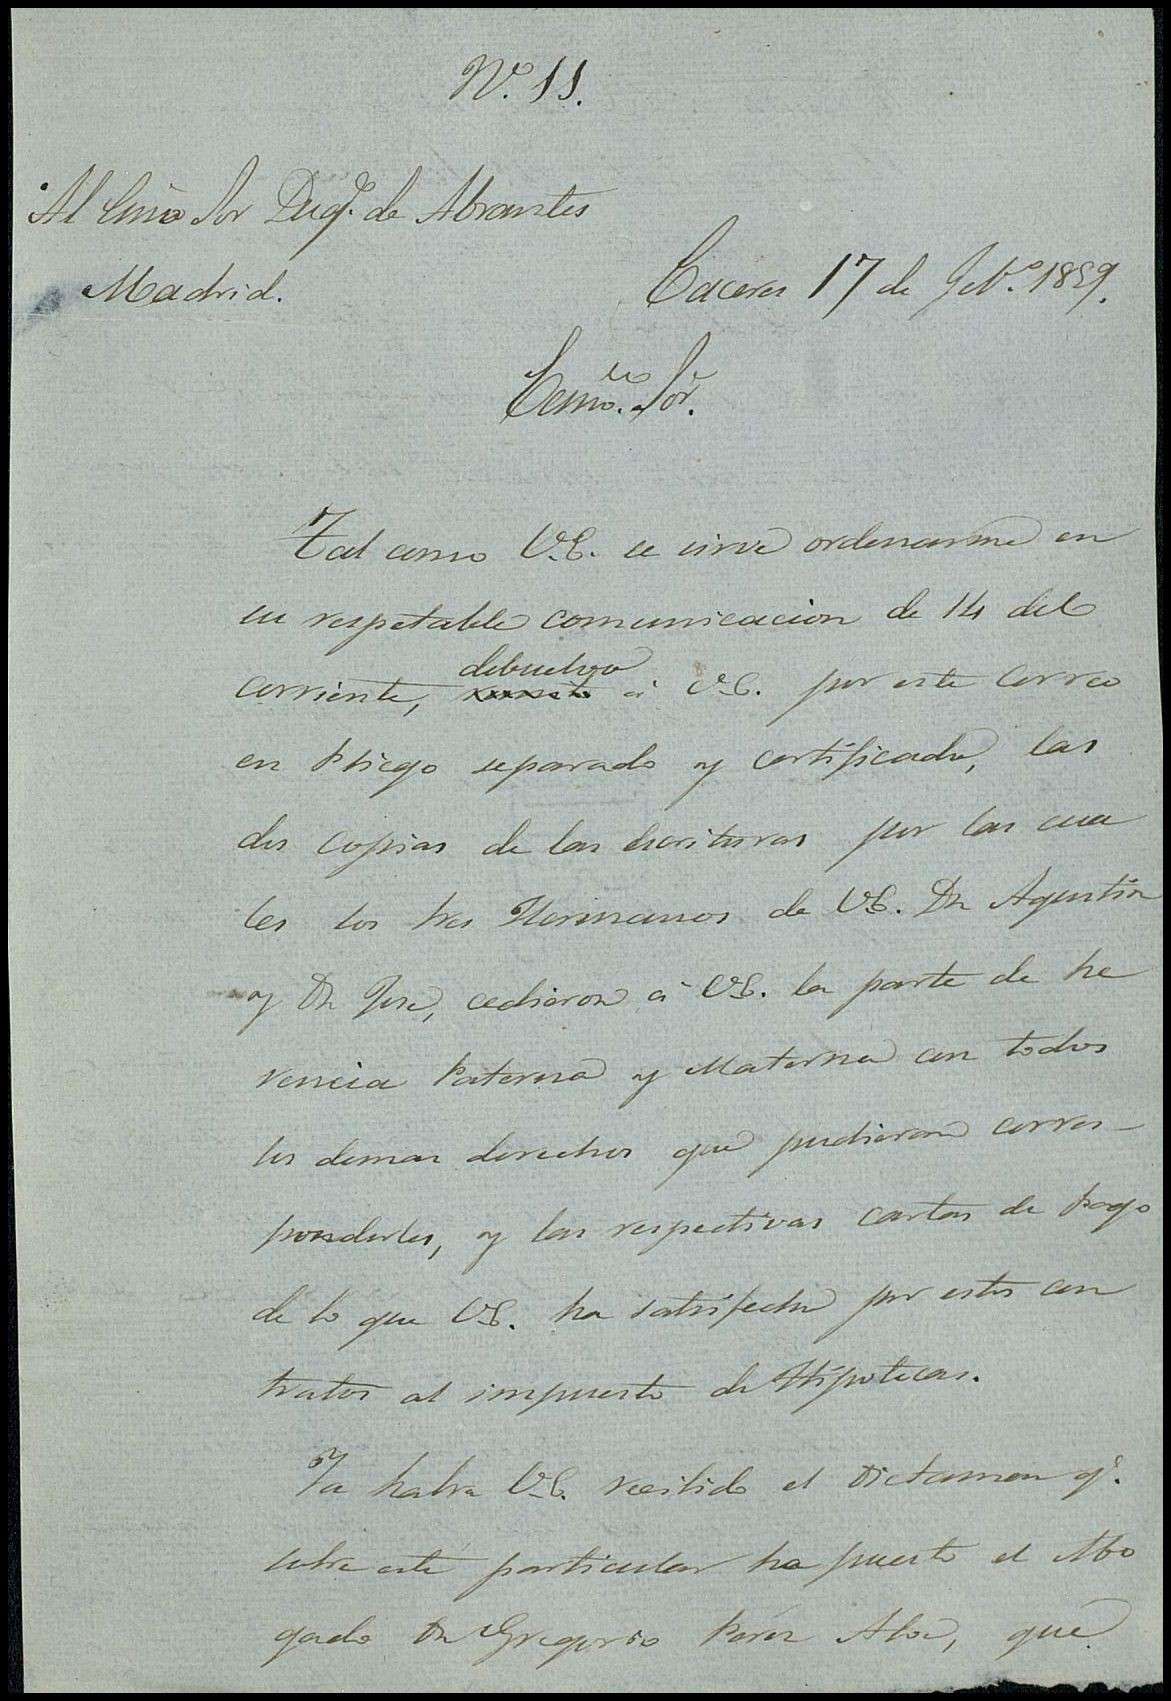 Nº. 11.
Al Exmo Sor Duqe. de Abrantes
Madrid.
Caceres 17 de Febo. 1859.
Exmo. Sor.
Tal como V.E. se sirve ordenarme en
su respetable comunicacion de 14 del
debuelvo
corriente, á V.E. por este correo
en Pliego separado y certificado, las
dos copias de las escrituras por las cua
les los tres Hermanos de V.E. Dn Agustin
y Dn José, cedieron á V.E. la parte de he
rencia Paterna y Materna con todos
los demas derechos que pudieran corres-
ponderles, y las respectivas cartas de Pago
de lo que V.E. ha satisfecho por estos con
tratos al impuesto de Hipotecas.
Ya habra V.E. recibido el Dictamen qe.
sobre este particular ha puesto el Abo
gado Dn Gregorio Perez Aloe, que